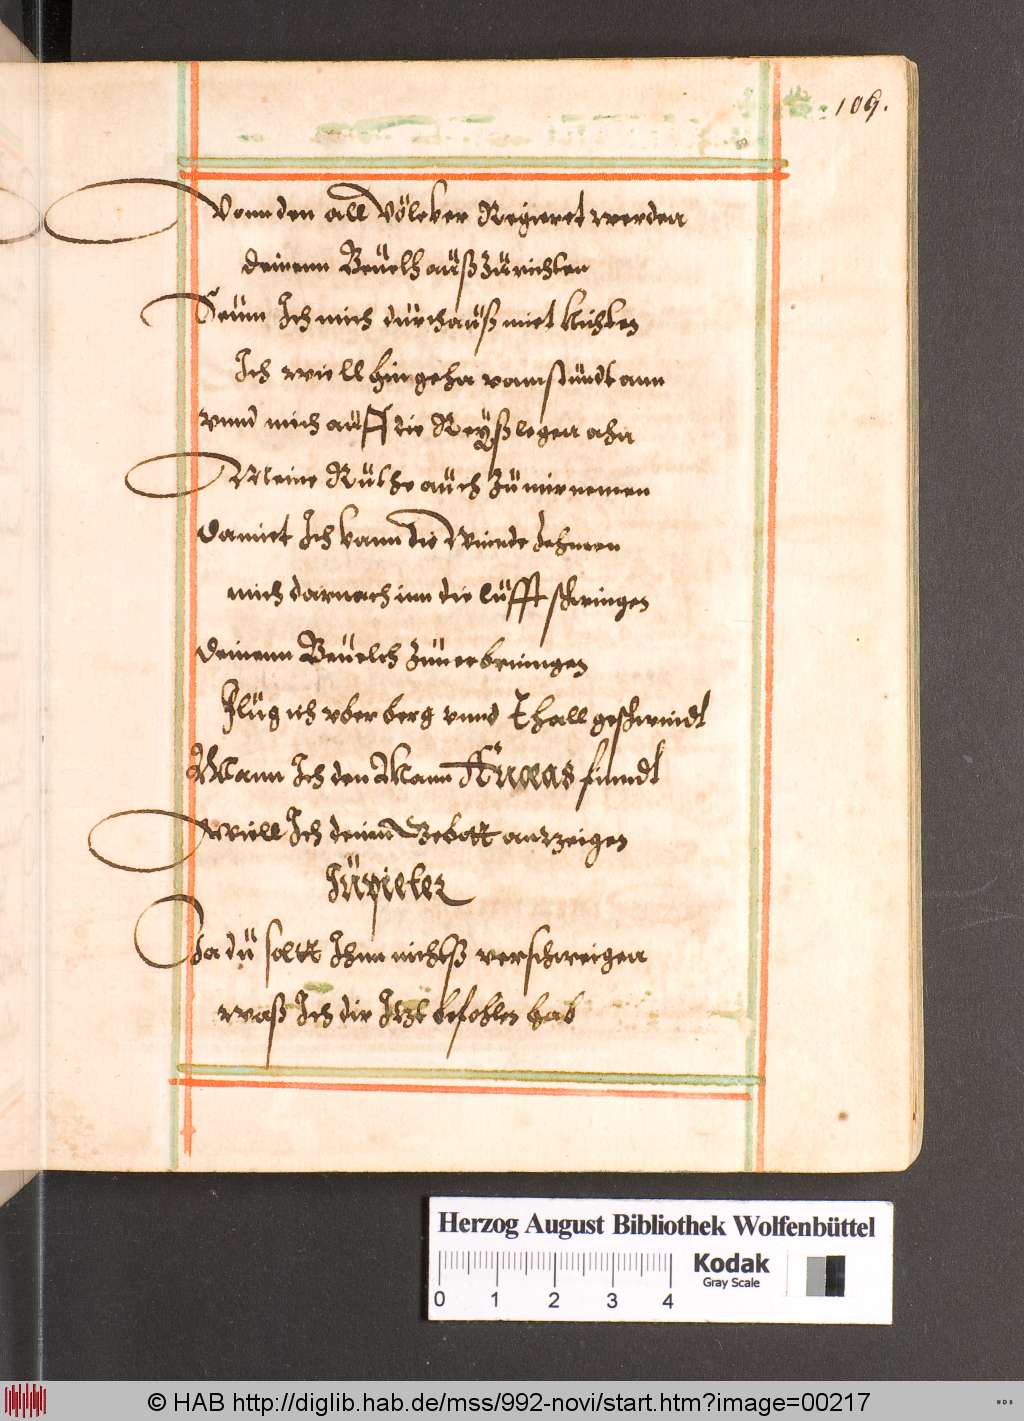 109.
Vonn den all Völcker Regieret werden
deinenn Beuelh auß zurichten
Seüm Ich mich durchauß miet Nichten
Ich wiell hin gehn vonn stundt ann
vnnd mich auff die Reyß legen ahn
Meine Ruthe auch zu mir nemen
Damiet Ich kann die Wiende Zehmen
mich darnach inn die lüfft schwingen
deinenn Beuelch zuuerbringen
Flüg ich vber berg vnnd Thall geschwindt
Wann Ich den Mann Aeneas fiendt
Wiell Ich deinn Gebott anzeigen
Jupieter
Ja du soltt Ihm nichtß verschweigen
waß Ich dir Itzt befohlen hab
Herzog August Bibliothek Wolfenbüttel
0 1 2 3 4
Kodak
Gray Scale
© HAB http://diglib.hab.de/mss/992-novi/start.htm?image=00217